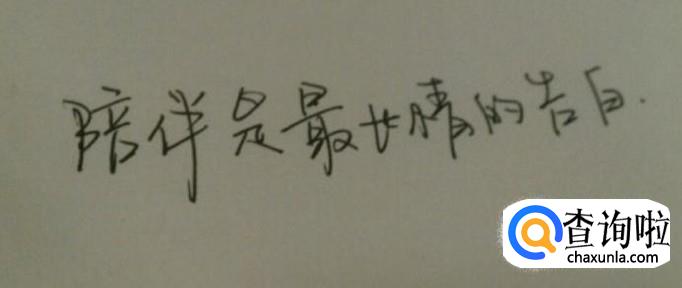 陪伴是最长情的告白.
查询啦
chaxunla.com